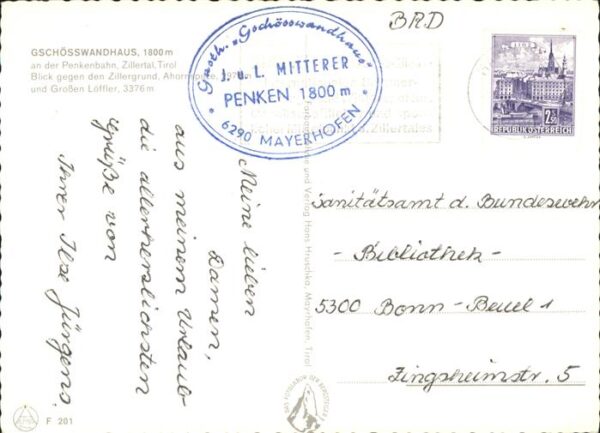 GSCHÖSSWANDHAUS, 1800 m
an der Penkenbahn, Zillertal, Tirol
Blick gegen den Zillergrund,
und Großen Löffler, 3376 m
Gasth. „Gschösswandhaus"
J. u. L. MITTERER
PENKEN 1800 m
6290 MAYERHOFEN
BRD
2,50
REPUBLIK ÖSTERREICH
Zillertales
Meine lieben
Damen,
aus meinem Urlaub
die allerherzlichsten
Grüße von
Ihrer Ilse Jürgens.
und Verlag Hans Hruschka, Mayrhofen, Tirol
Sanitätsamt d. Bundeswehr
- Bibliothek -
5300 Bonn - Beuel 1
Zingsheimstr. 5
F 201